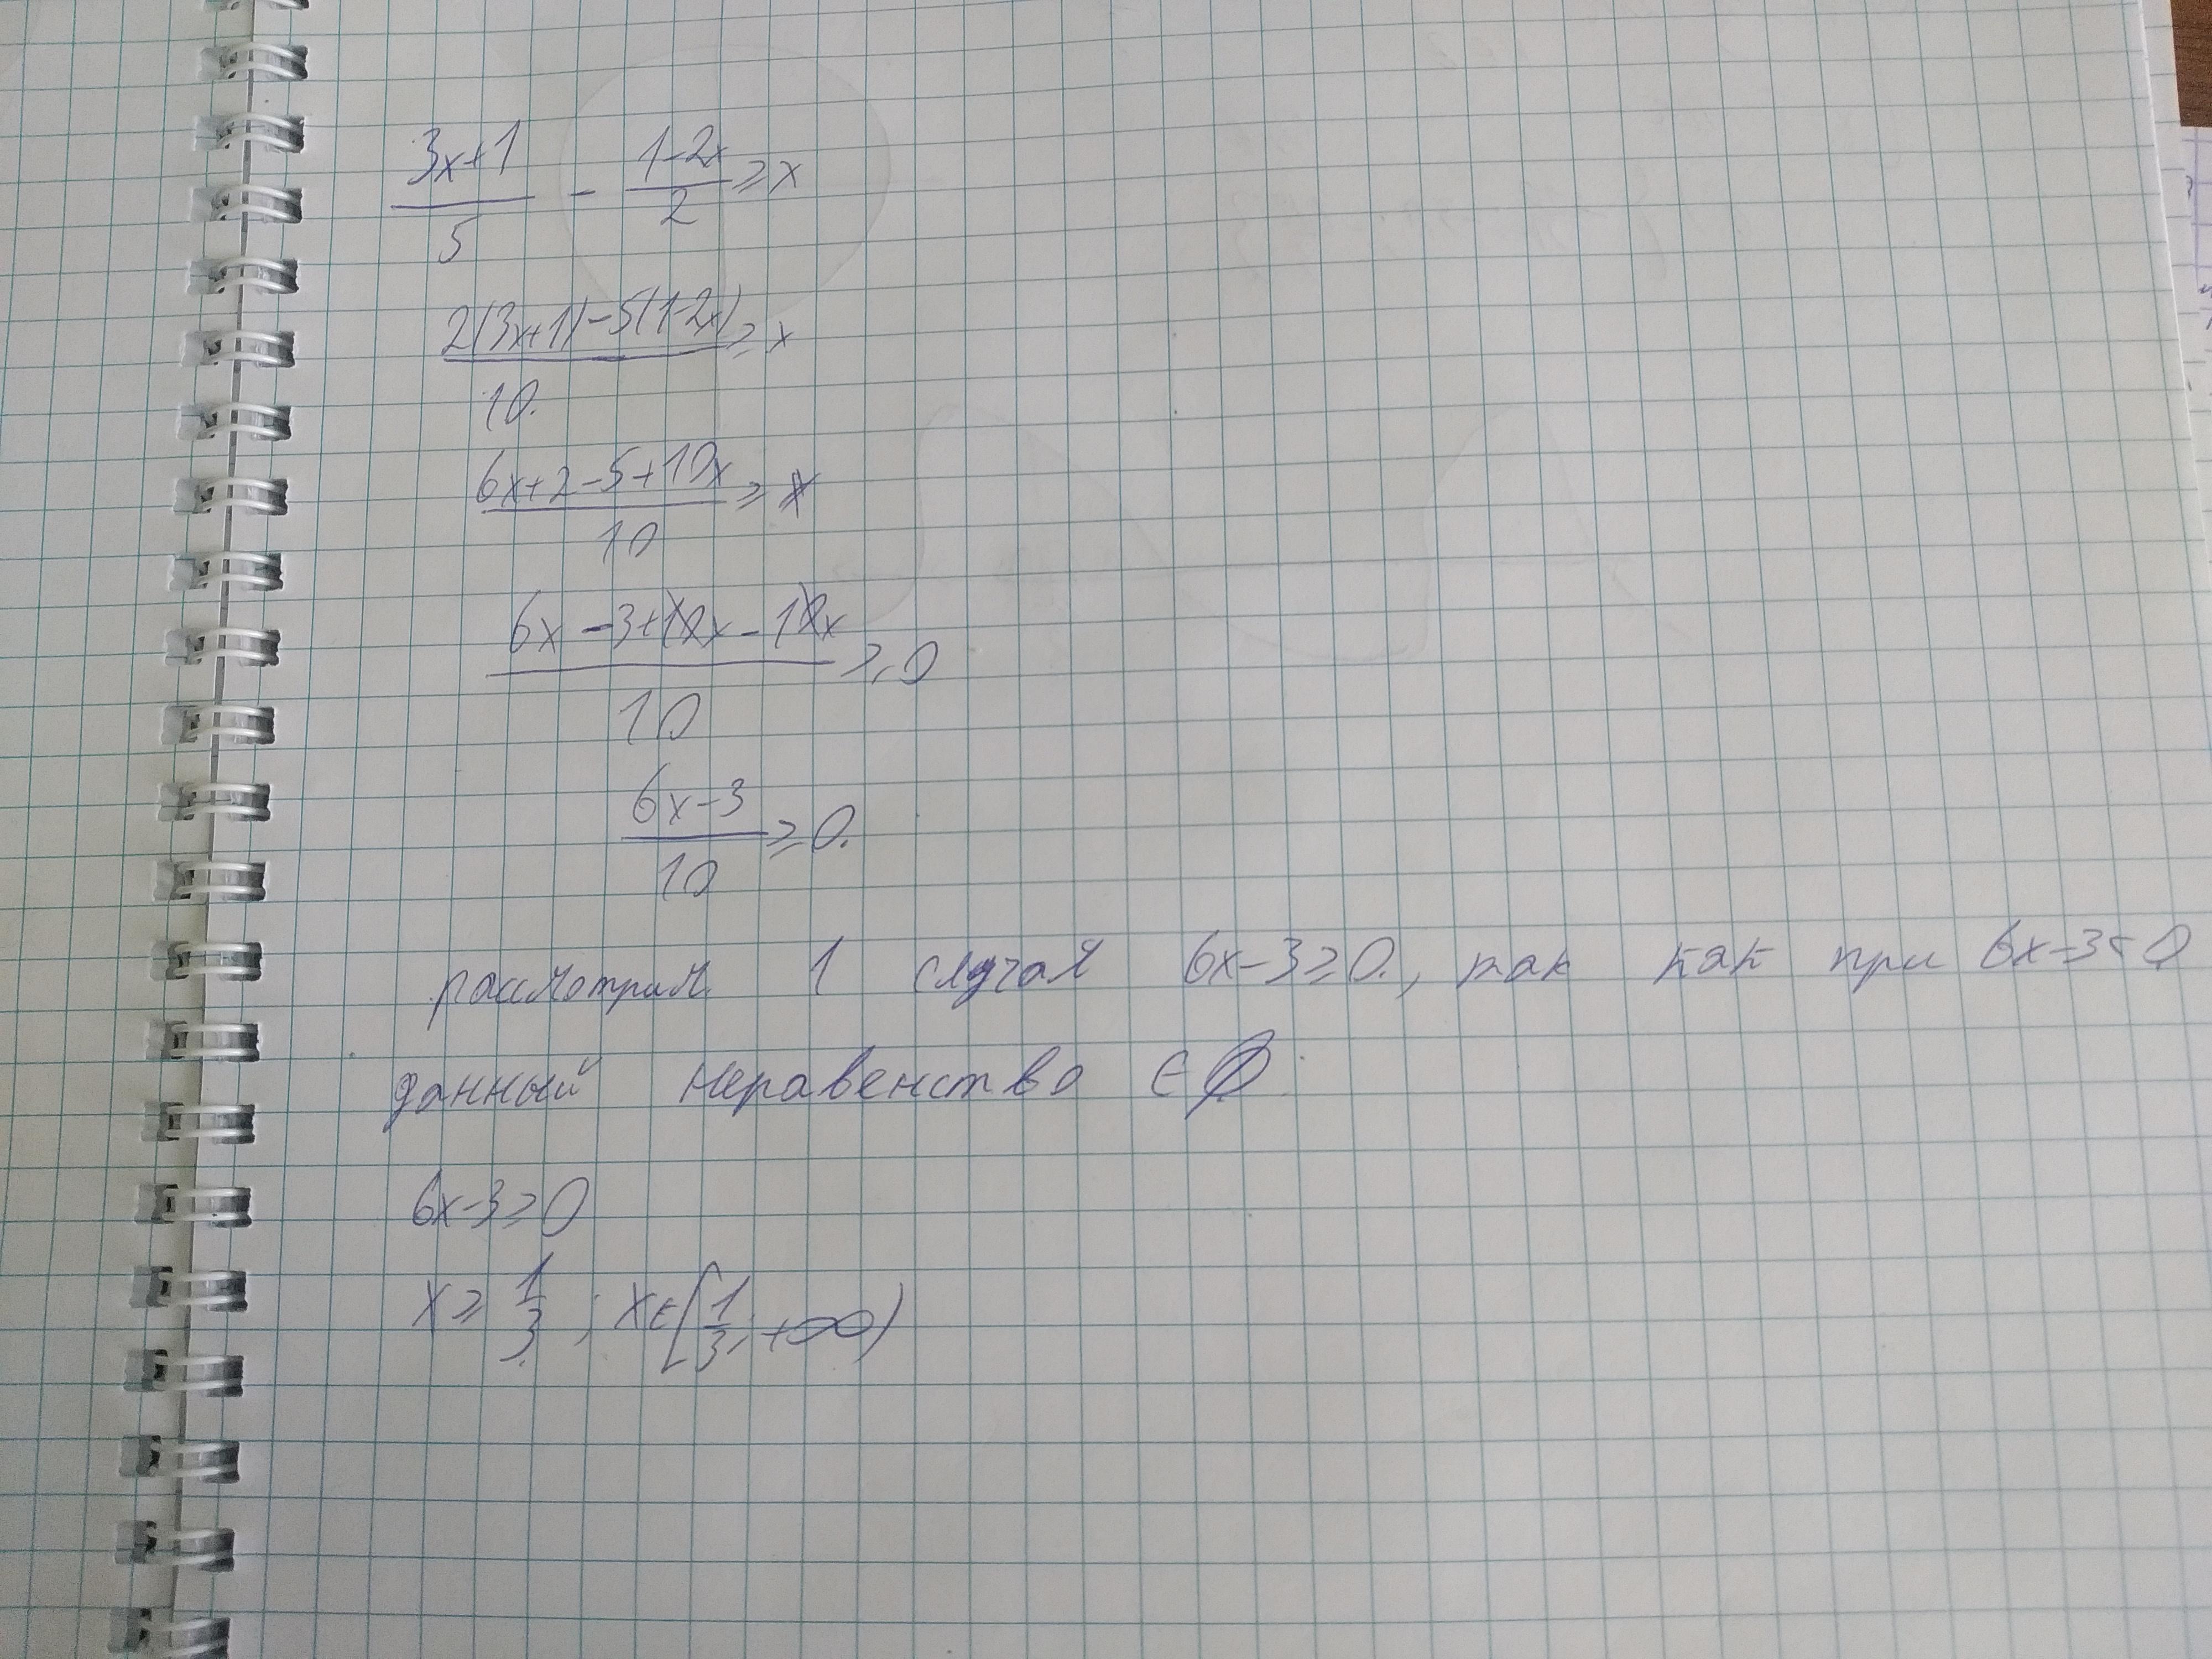 (3x+1)/5 - (1-2x)/2 ≥ x
(2(3x+1)-5(1-2x))/10. ≥ x
(6x+2-5+10x)/10 ≥ x
(6x-3+10x-10x)/10 ≥ 0
(6x-3)/10 ≥ 0.
рассмотрим 1 случая 6x-3≥0., так как при 6x-3<0
данный неравенство ∈ ∅.
6x-3≥0
x ≥ 1/3 ; x∈[1/3; +∞)